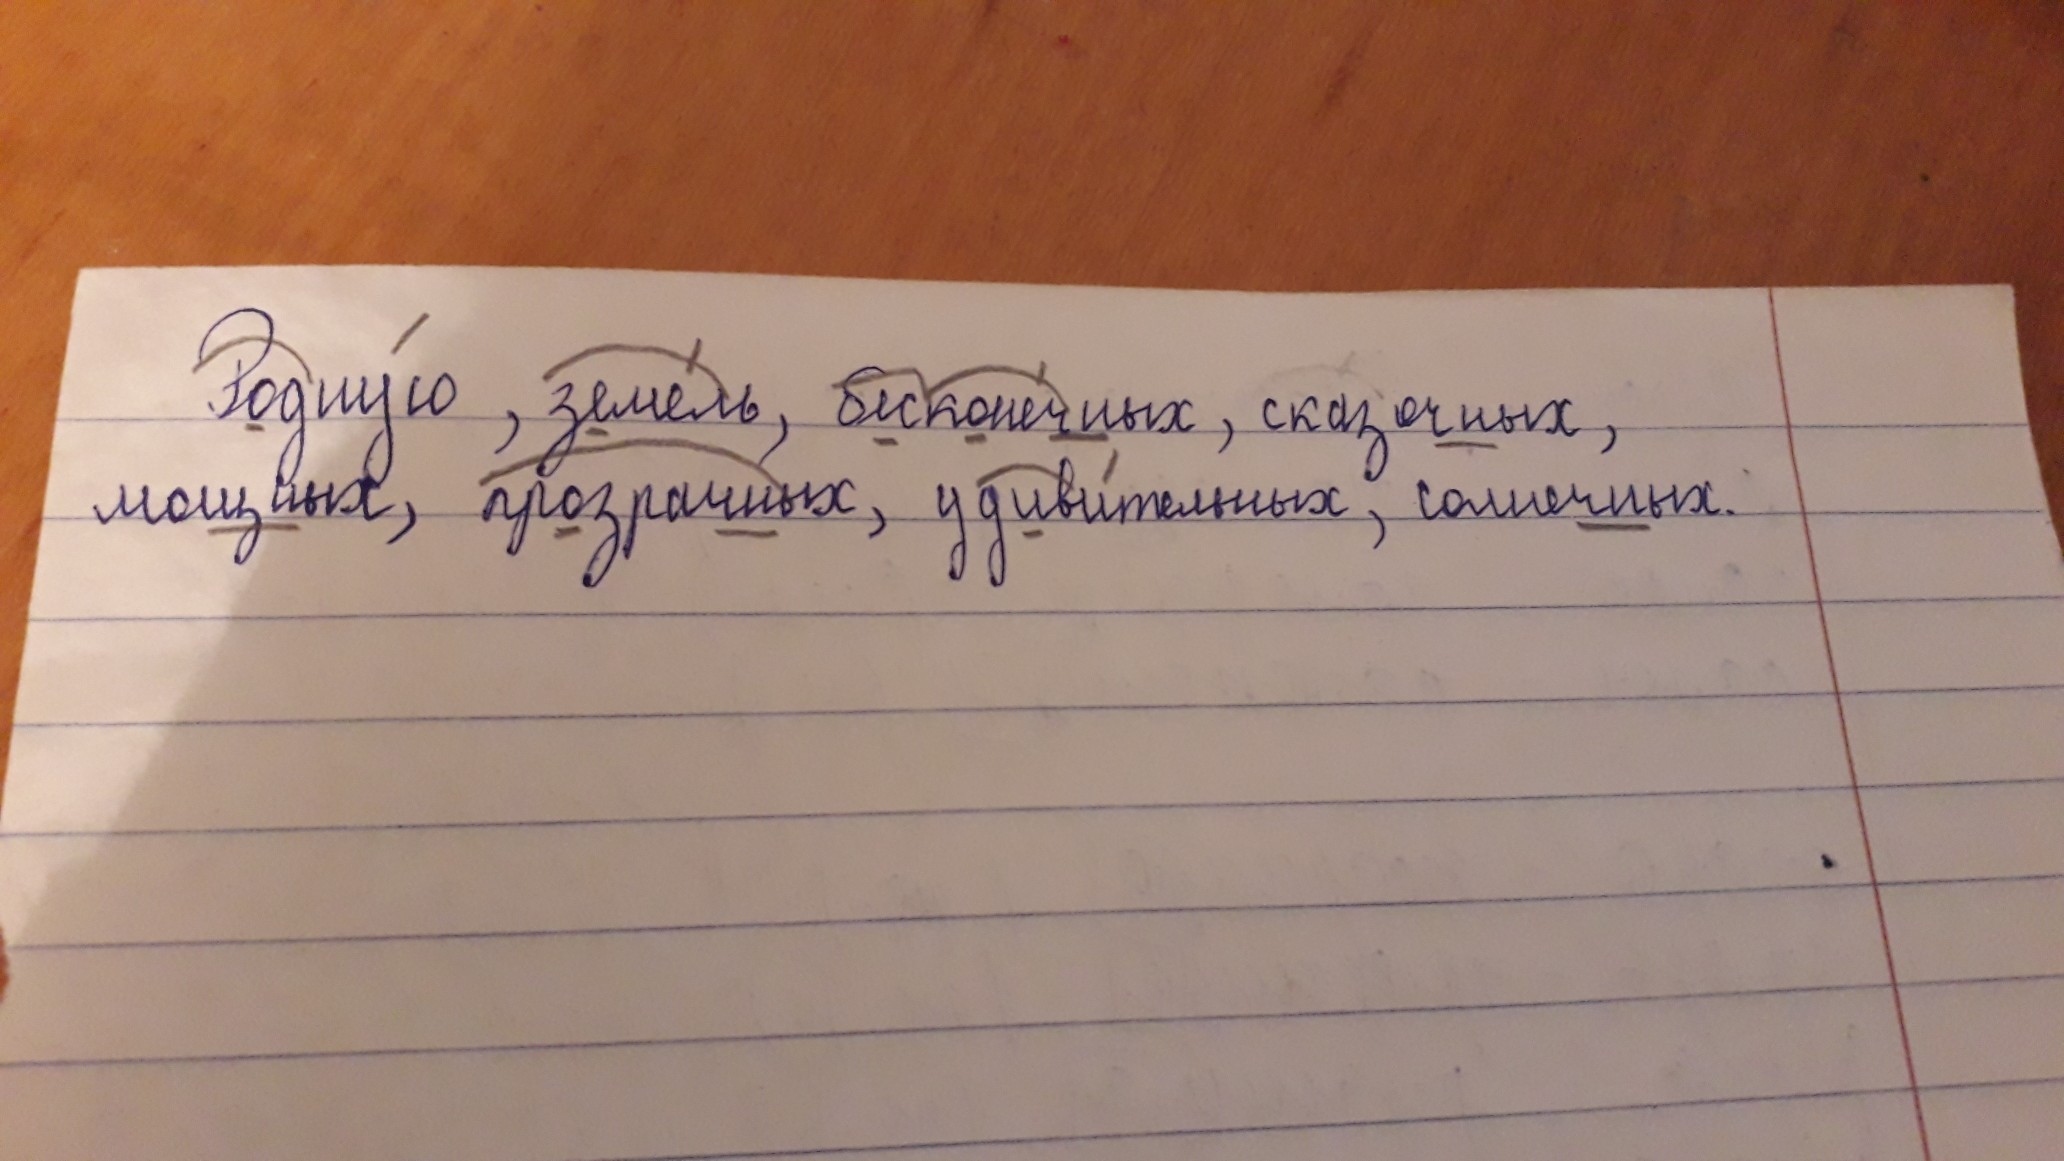 Родну́ю, земе́ль, бесконе́чных, сказочных,
мощных, прозрачных, удиви́тельных, солнечных.